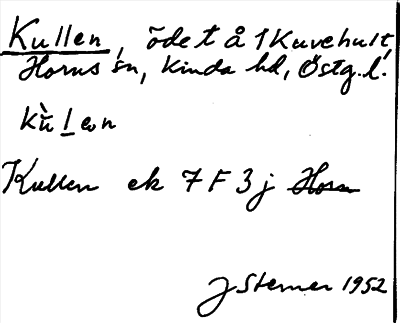 Kullen, ödet å 1 Kuvehult,
Horns sn, Kinda hd, Östg. l.
kù̈l̲ən
Kullen ek 7 F 3 j Horn
J Sterner 1952